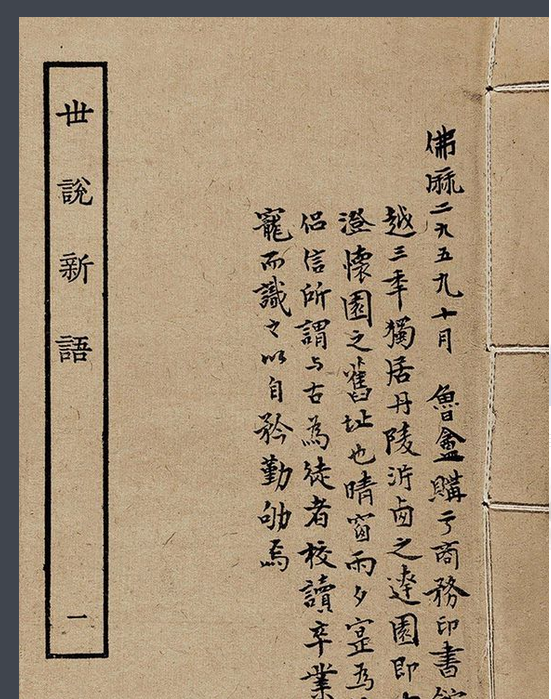 佛曆二九五九十月 魯盦購于商務印書館
越三年獨居丹陵沜鹵之達園即
澄懷園之舊址也晴窗雨夕寔為
侶信所謂与古為徒者校讀卒業
寵而識之以自矜勤劬焉
世說新語 一